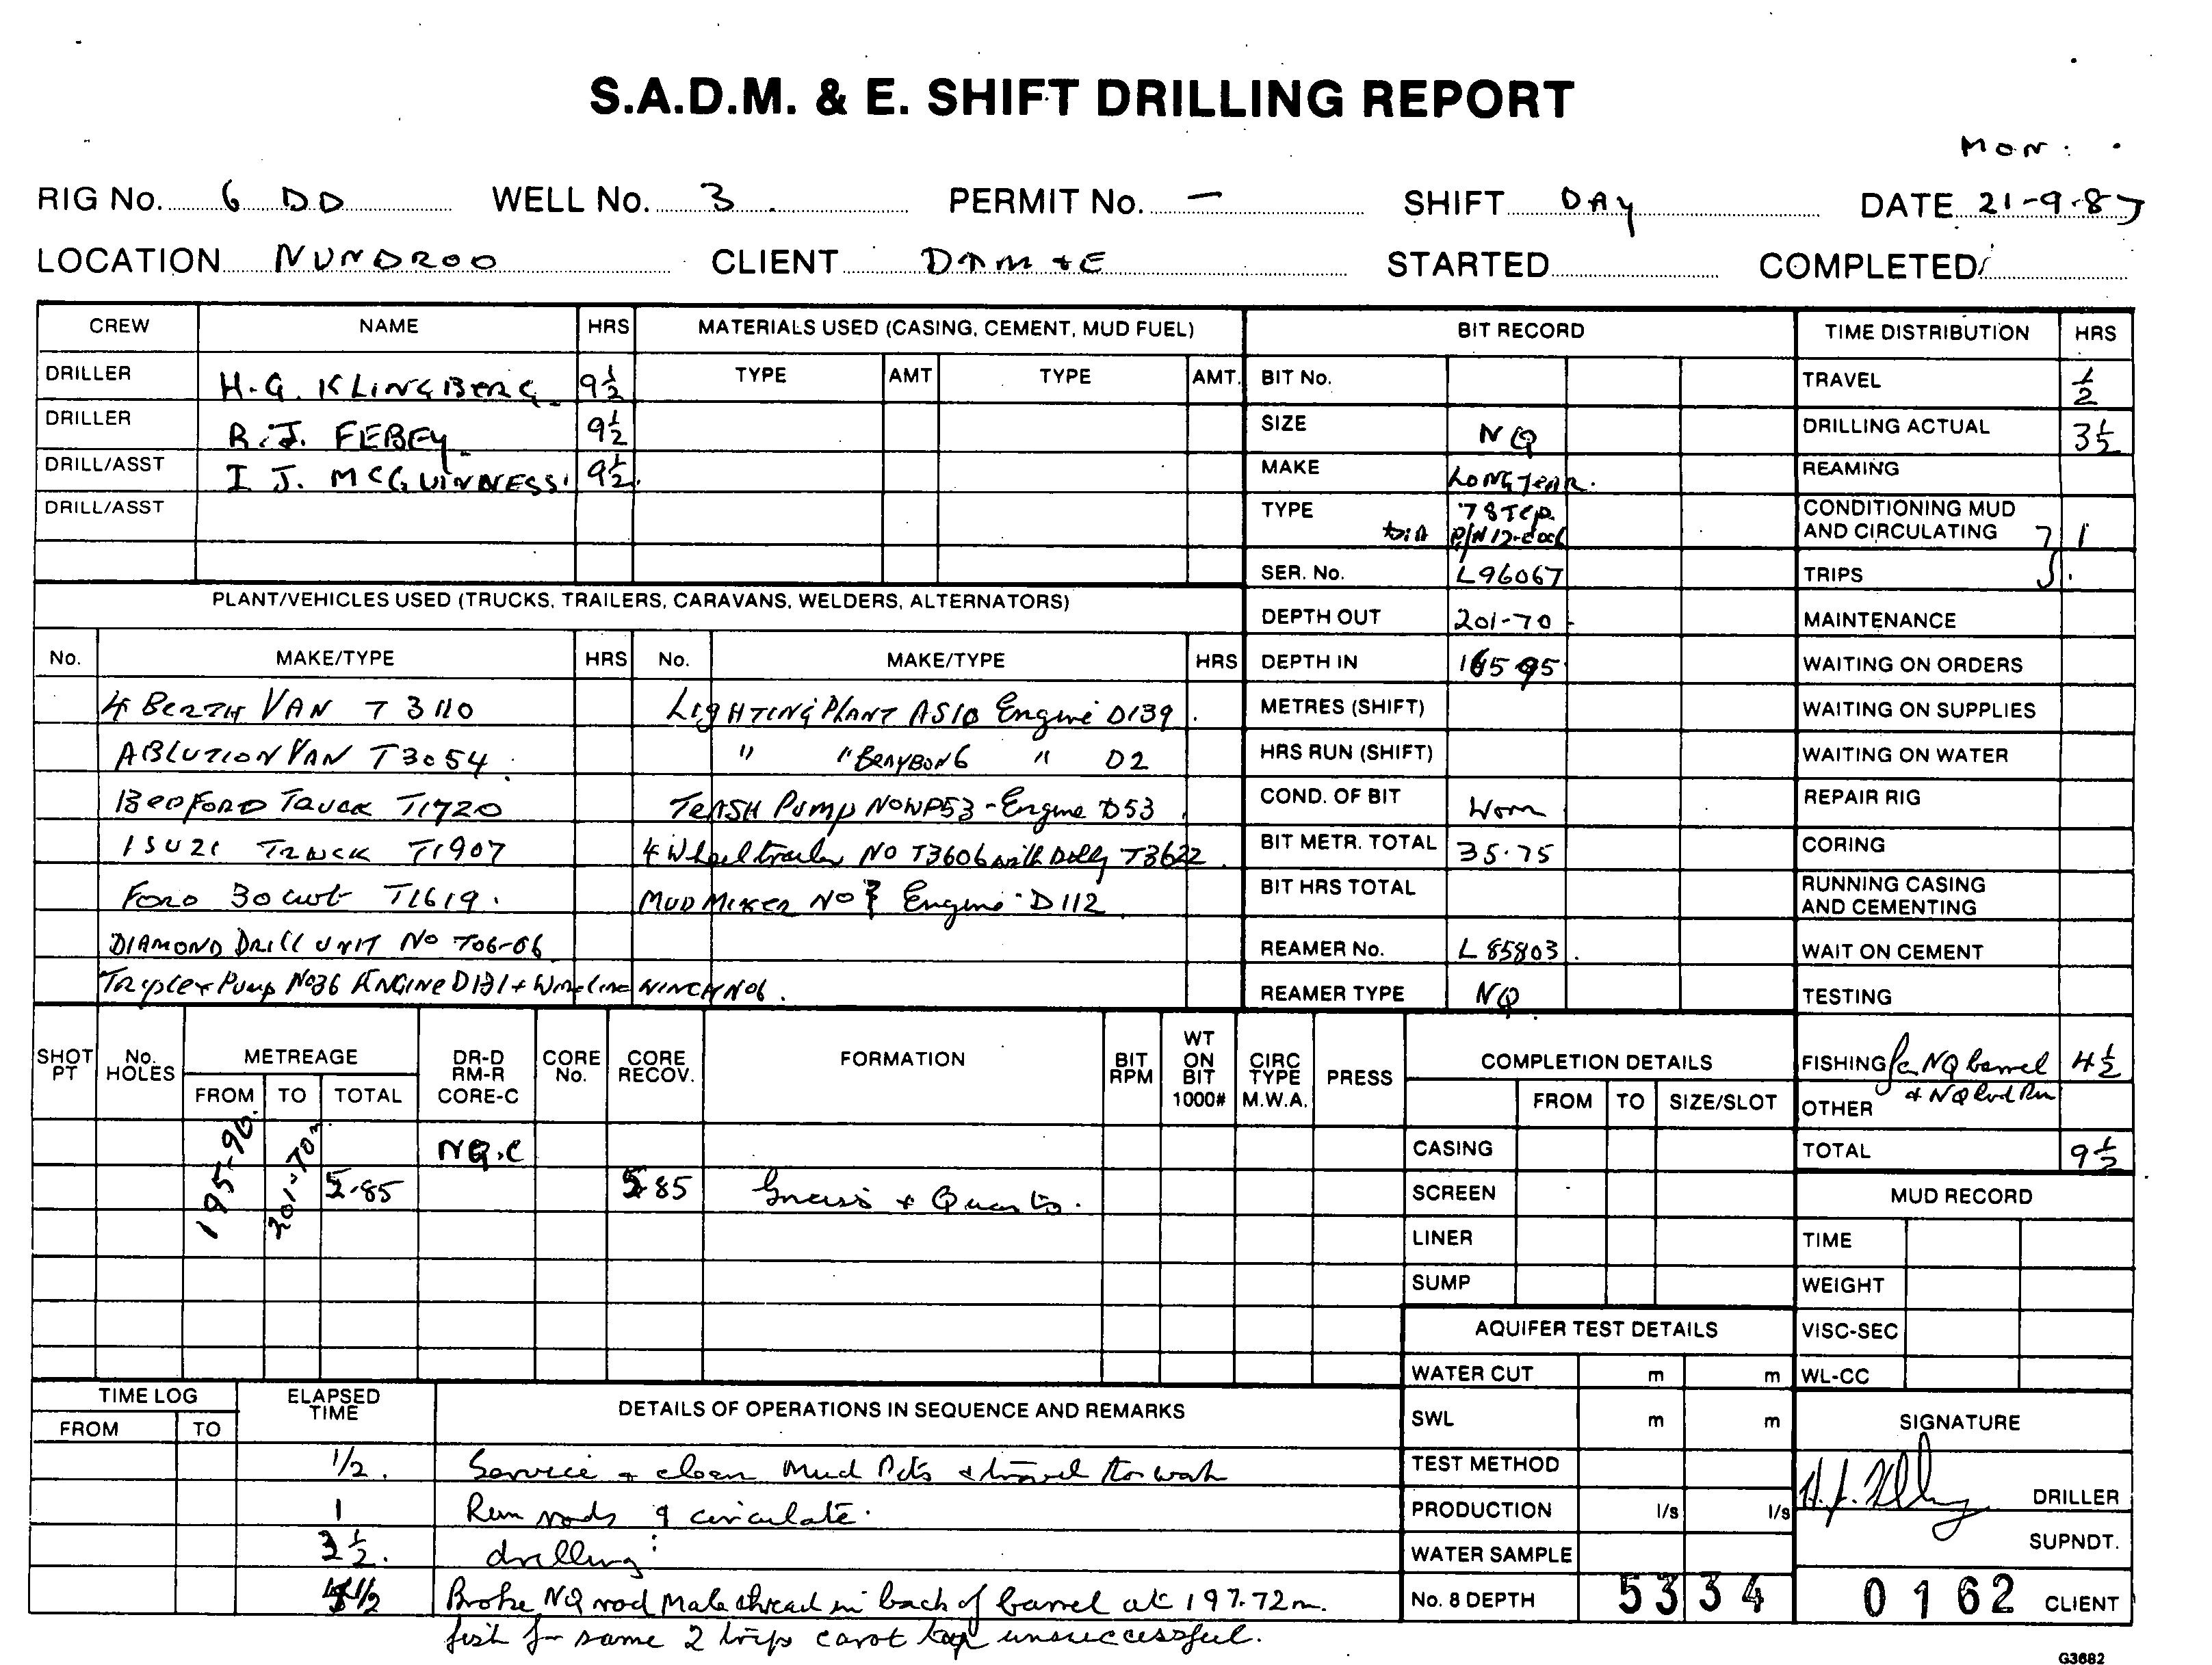 S.A.D.M. & E. SHIFT DRILLING REPORT
MON.
RIG No. 6 DD WELL No. 3 PERMIT No. – SHIFT DAY DATE 21-9-87
LOCATION NUNDROO CLIENT DM+E STARTED COMPLETED
CREW NAME HRS MATERIALS USED (CASING, CEMENT, MUD FUEL) BIT RECORD TIME DISTRIBUTION HRS
DRILLER H.G. KLINGBERG 9½ TYPE AMT TYPE AMT. BIT No. TRAVEL ½
DRILLER R.J. FEBEY 9½ SIZE NQ DRILLING ACTUAL 3½
DRILL/ASST I J. MCGUINNESS 9½ MAKE LONGYEAR. REAMING
DRILL/ASST TYPE 7 STEP CONDITIONING MUD
DIA P/N 12- AND CIRCULATING 1
SER. No. L96067 TRIPS
PLANT/VEHICLES USED (TRUCKS, TRAILERS, CARAVANS, WELDERS, ALTERNATORS)
DEPTH OUT 201-70 MAINTENANCE
No. MAKE/TYPE HRS No. MAKE/TYPE HRS DEPTH IN 165 95 WAITING ON ORDERS
4 BERTH VAN T 3110 LIGHTING PLANT AS10 Engine D139 METRES (SHIFT) WAITING ON SUPPLIES
ABLUTION VAN T3054 " " BRAYBON 6 " D2 HRS RUN (SHIFT) WAITING ON WATER
BEDFORD TRUCK T1720 TRASH Pump NOWP53 - Engine D53 COND. OF BIT Worn REPAIR RIG
ISUZI TRUCK T1907 4 Wheel trailer NO T3606 with Dolly T3622 BIT METR. TOTAL 35.75 CORING
FORD 30 cwt T1619. MUD MIXER NO Engine D112 BIT HRS TOTAL RUNNING CASING
AND CEMENTING
DIAMOND DRILL UNIT NO T06-06 REAMER No. L 85803 WAIT ON CEMENT
Triplex Pump No36 ENGINE D131 + Wireline WINCH No6. REAMER TYPE NQ TESTING
SHOT PT No. HOLES METREAGE DR-D RM-R CORE-C CORE No. CORE RECOV. FORMATION BIT RPM WT ON BIT 1000# CIRC TYPE M.W.A. PRESS COMPLETION DETAILS FISHING for NQ barrel 4½
FROM TO TOTAL FROM TO SIZE/SLOT OTHER + NQ Rod
NQ.C CASING TOTAL 9½
195-90. 201-70m 5.85 5 85 Gneiss + Quartz. SCREEN MUD RECORD
LINER TIME
SUMP WEIGHT
AQUIFER TEST DETAILS VISC-SEC
WATER CUT m m WL-CC
TIME LOG ELAPSED TIME DETAILS OF OPERATIONS IN SEQUENCE AND REMARKS SWL m m SIGNATURE
FROM TO
1/2. Service + clean Mud Pits + travel to work TEST METHOD
1 Run rods & circulate. PRODUCTION l/s l/s DRILLER
3½. drilling WATER SAMPLE SUPNDT.
4½ Broke NQ rod Male thread in back of barrel at 197.72m. No. 8 DEPTH 5334 0162 CLIENT
fish for same 2 trips carot tap unsuccessful.
G3682